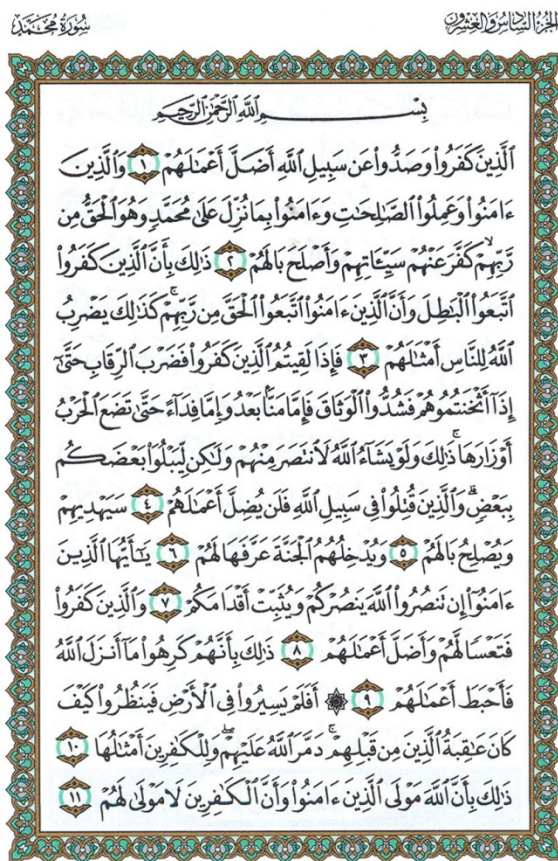 الجزء السادس والعشرون سورة محمد
بِسْمِ ٱللَّهِ ٱلرَّحْمَٰنِ ٱلرَّحِيمِ
ٱلَّذِينَ كَفَرُوا۟ وَصَدُّوا۟ عَن سَبِيلِ ٱللَّهِ أَضَلَّ أَعْمَٰلَهُمْ ١ وَٱلَّذِينَ
ءَامَنُوا۟ وَعَمِلُوا۟ ٱلصَّٰلِحَٰتِ وَءَامَنُوا۟ بِمَا نُزِّلَ عَلَىٰ مُحَمَّدٍ وَهُوَ ٱلْحَقُّ مِن
رَّبِّهِمْ ۙ كَفَّرَ عَنْهُمْ سَيِّـَٔاتِهِمْ وَأَصْلَحَ بَالَهُمْ ٢ ذَٰلِكَ بِأَنَّ ٱلَّذِينَ كَفَرُوا۟
ٱتَّبَعُوا۟ ٱلْبَٰطِلَ وَأَنَّ ٱلَّذِينَ ءَامَنُوا۟ ٱتَّبَعُوا۟ ٱلْحَقَّ مِن رَّبِّهِمْ ۚ كَذَٰلِكَ يَضْرِبُ
ٱللَّهُ لِلنَّاسِ أَمْثَٰلَهُمْ ٣ فَإِذَا لَقِيتُمُ ٱلَّذِينَ كَفَرُوا۟ فَضَرْبَ ٱلرِّقَابِ حَتَّىٰٓ
إِذَآ أَثْخَنتُمُوهُمْ فَشُدُّوا۟ ٱلْوَثَاقَ فَإِمَّا مَنًّۢا بَعْدُ وَإِمَّا فِدَآءً حَتَّىٰ تَضَعَ ٱلْحَرْبُ
أَوْزَارَهَا ۚ ذَٰلِكَ وَلَوْ يَشَآءُ ٱللَّهُ لَٱنتَصَرَ مِنْهُمْ وَلَٰكِن لِّيَبْلُوَا۟ بَعْضَكُم
بِبَعْضٍ ۗ وَٱلَّذِينَ قُتِلُوا۟ فِى سَبِيلِ ٱللَّهِ فَلَن يُضِلَّ أَعْمَٰلَهُمْ ٤ سَيَهْدِيهِمْ
وَيُصْلِحُ بَالَهُمْ ٥ وَيُدْخِلُهُمُ ٱلْجَنَّةَ عَرَّفَهَا لَهُمْ ٦ يَٰٓأَيُّهَا ٱلَّذِينَ
ءَامَنُوٓا۟ إِن تَنصُرُوا۟ ٱللَّهَ يَنصُرْكُمْ وَيُثَبِّتْ أَقْدَامَكُمْ ٧ وَٱلَّذِينَ كَفَرُوا۟
فَتَعْسًا لَّهُمْ وَأَضَلَّ أَعْمَٰلَهُمْ ٨ ذَٰلِكَ بِأَنَّهُمْ كَرِهُوا۟ مَآ أَنزَلَ ٱللَّهُ
فَأَحْبَطَ أَعْمَٰلَهُمْ ٩ ۞ أَفَلَمْ يَسِيرُوا۟ فِى ٱلْأَرْضِ فَيَنظُرُوا۟ كَيْفَ
كَانَ عَٰقِبَةُ ٱلَّذِينَ مِن قَبْلِهِمْ ۚ دَمَّرَ ٱللَّهُ عَلَيْهِمْ ۖ وَلِلْكَٰفِرِينَ أَمْثَٰلُهَا ١٠
ذَٰلِكَ بِأَنَّ ٱللَّهَ مَوْلَى ٱلَّذِينَ ءَامَنُوا۟ وَأَنَّ ٱلْكَٰفِرِينَ لَا مَوْلَىٰ لَهُمْ ١١